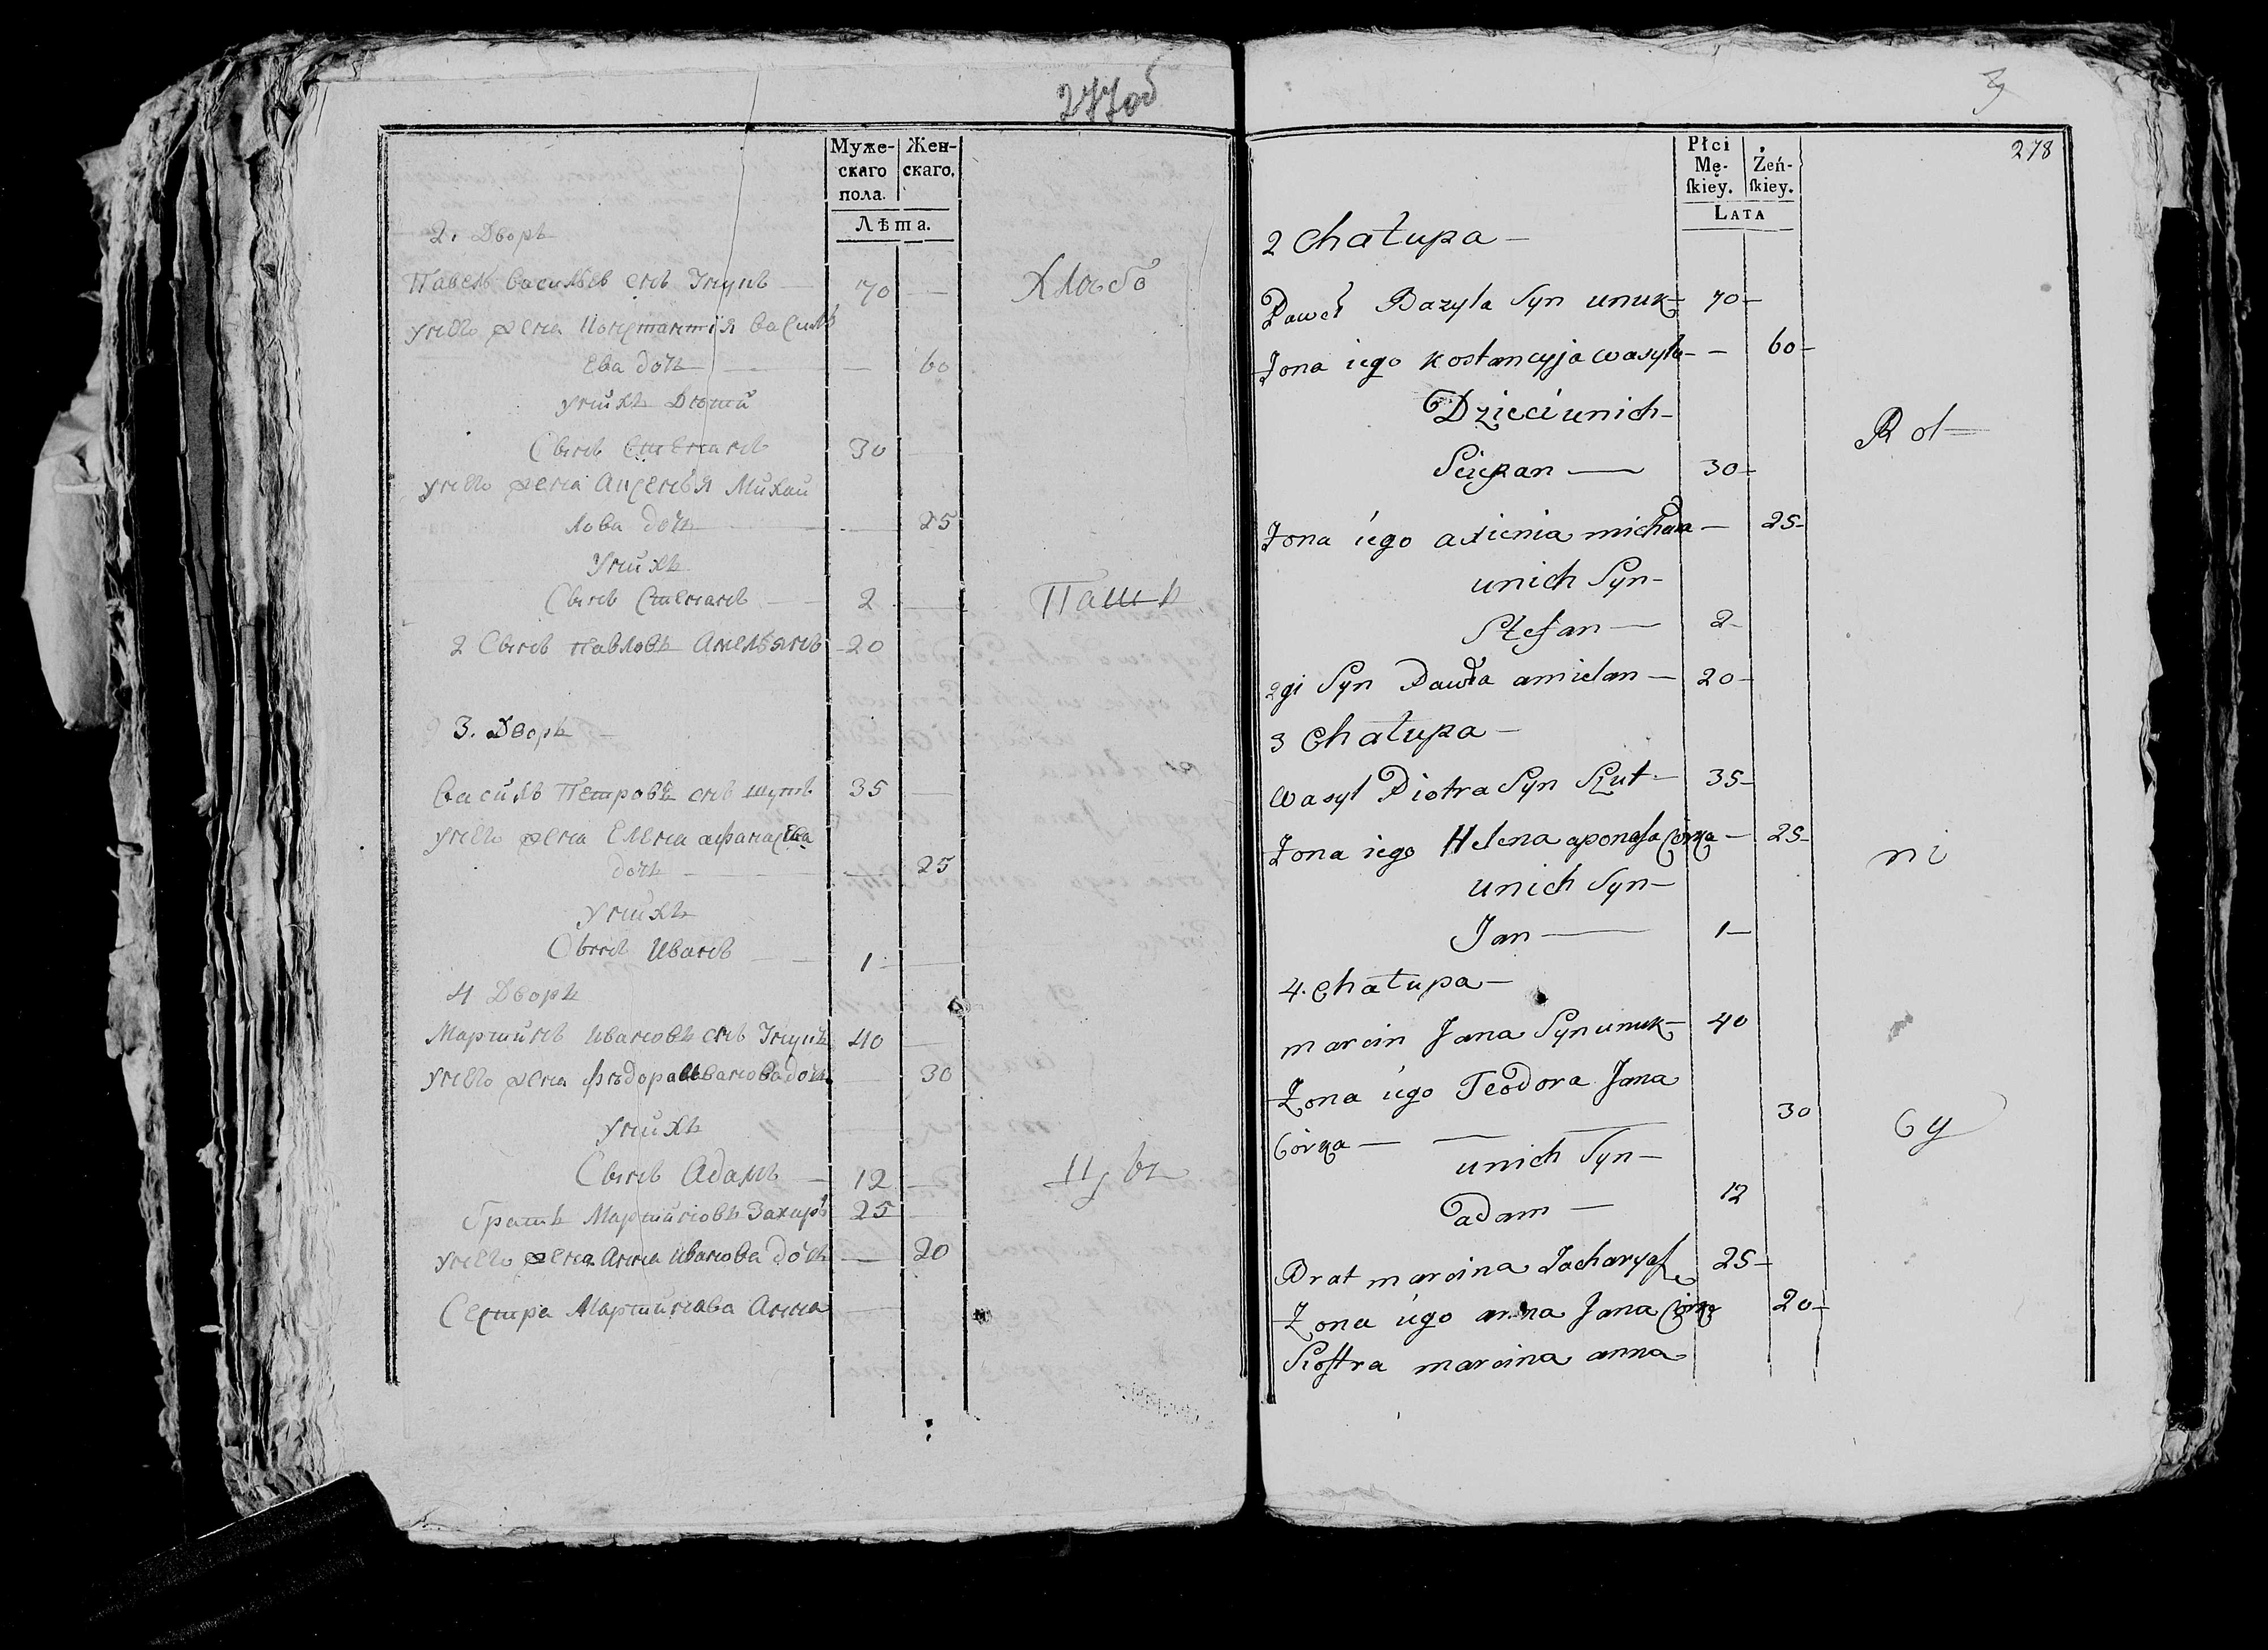 277об
Муже-
скаго
пола.
Жен-
скаго.
Лѣта.
2. Дворъ
Павелъ Васильев снъ Унукъ — 70 —
унего жена Константія Василь
ева дочь — — 60
унихъ Дѣти
Сынъ Степанъ 30 —
унего жена Аксенья Михай
лова дочь — — 25
Унихъ
Сынъ Степанъ — 2 —
2 Сынъ Павловъ Амельянъ 20
3. Дворъ —
Василь Петровъ снъ шутъ 35 —
унего жена Елена афанасева
дочь — — 25
унихъ
Сынъ Иванъ — 1 —
4 Дворъ
Мартинъ Ивановъ снъ Унукъ 40 —
унего жена федора Иванова дочь — 30
унихъ
Сынъ Адамъ — 12 —
братъ Мартиновъ Захаръ 25 —
унего жена Анна Иванова дочь — 20
Сестра Мартинова Анна —
Хлѣбо
Паш
278
Płci
Mę-
skiey.
Żeń-
skiey.
LATA
2 Chałupa —
Paweł Bazyla Syn unuk — 70 —
Żona iego Kostancyja wasyla — — 60 —
Dzieci unich —
Sciepan — 30 —
Żona iego axienia michała — 25 —
unich Syn —
Stefan — 2 —
2gi Syn Pawła amielan — 20 —
3 Chałupa —
wasyl Piotra Syn Szut — 35 —
Żona iego Helena aponasa Córka — 25 —
unich Syn —
Jan — 1 —
4. Chałupa —
marcin Jana Syn unuk — 40
Żona iego Teodora Jana
Córka — — — 30
unich Syn —
adam — 12
Brat marcina Zacharyasz 25 —
Żona iego anna Jana Córka 20 —
Siostra marcina anna
Rol —
ni
cy